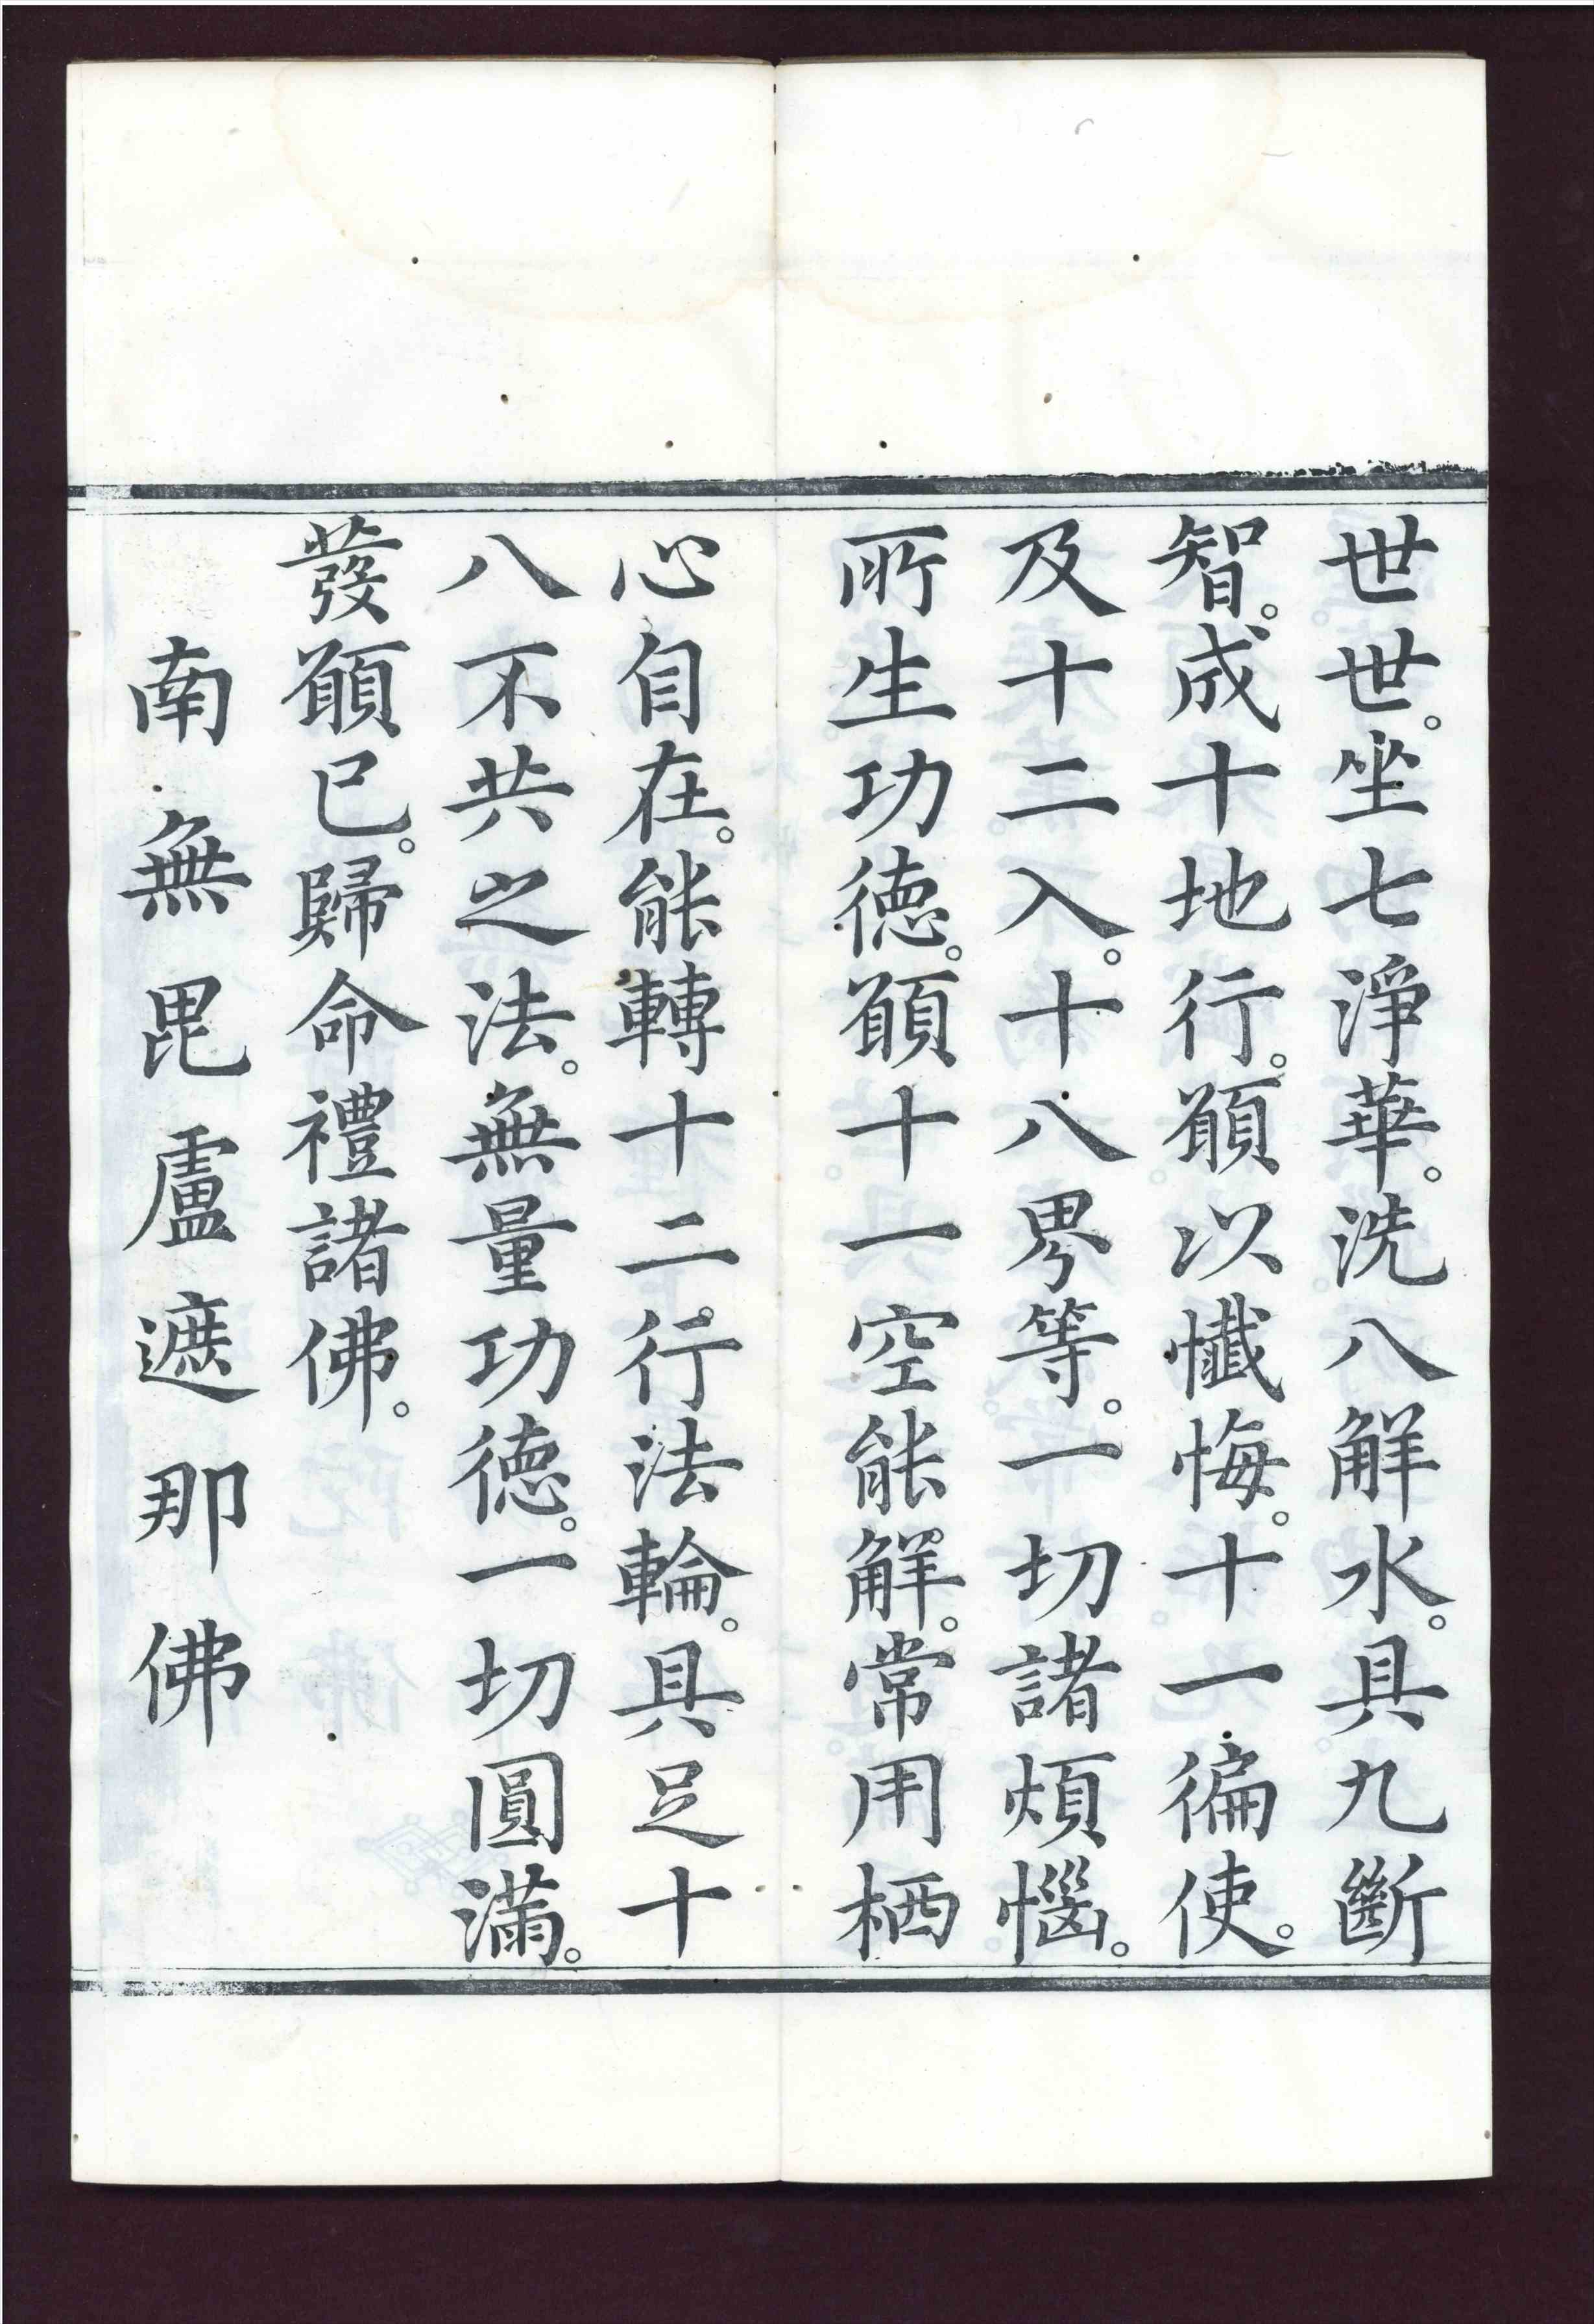 世世。坐七淨華。洗八解水。具九斷
智。成十地行。願以懺悔。十一徧使。
及十二入。十八界等。一切諸煩惱。
所生功德。願十一空能解。常用栖
心自在。能轉十二行法輪。具足十
八不共之法。無量功德。一切圓滿。
發願已。歸命禮諸佛。
南無毘盧遮那佛